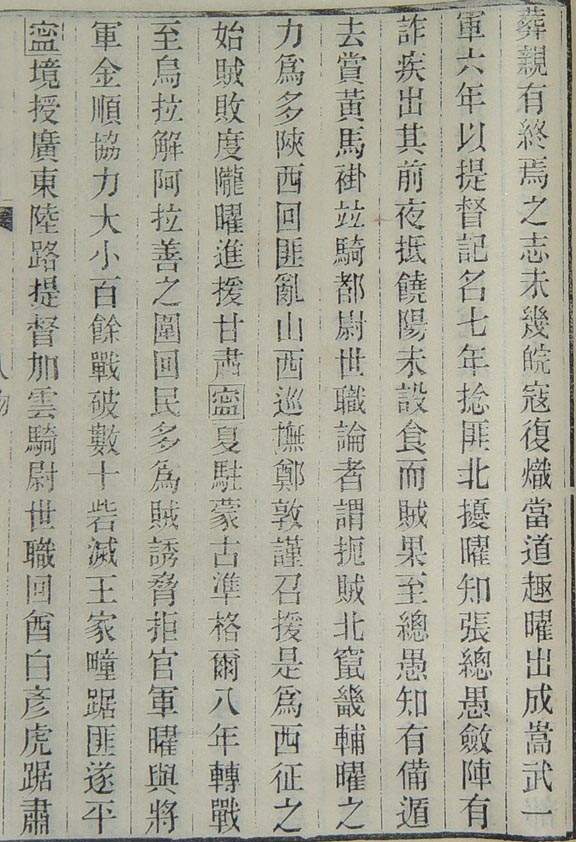 葬親有終焉之志未幾皖寇復熾當道趣曜出成嵩武一
軍六年以提督記名七年捻匪北擾曜知張總愚斂陣有
詐疾出其前夜抵饒陽未設食而賊果至總愚知有備遁
去賞黃馬褂竝騎都尉世職論者謂扼賊北竄畿輔曜之
力為多陝西回匪亂山西巡撫鄭敦謹召援是為西征之
始賊敗度隴曜進援甘肅寍夏駐蒙古準格爾八年轉戰
至烏拉解阿拉善之圍回民多為賊誘脅拒官軍曜與將
軍金順協力大小百餘戰破數十砦滅王家疃踞匪遂平
寍境授廣東陸路提督加雲騎尉世職回酋白彥虎踞肅